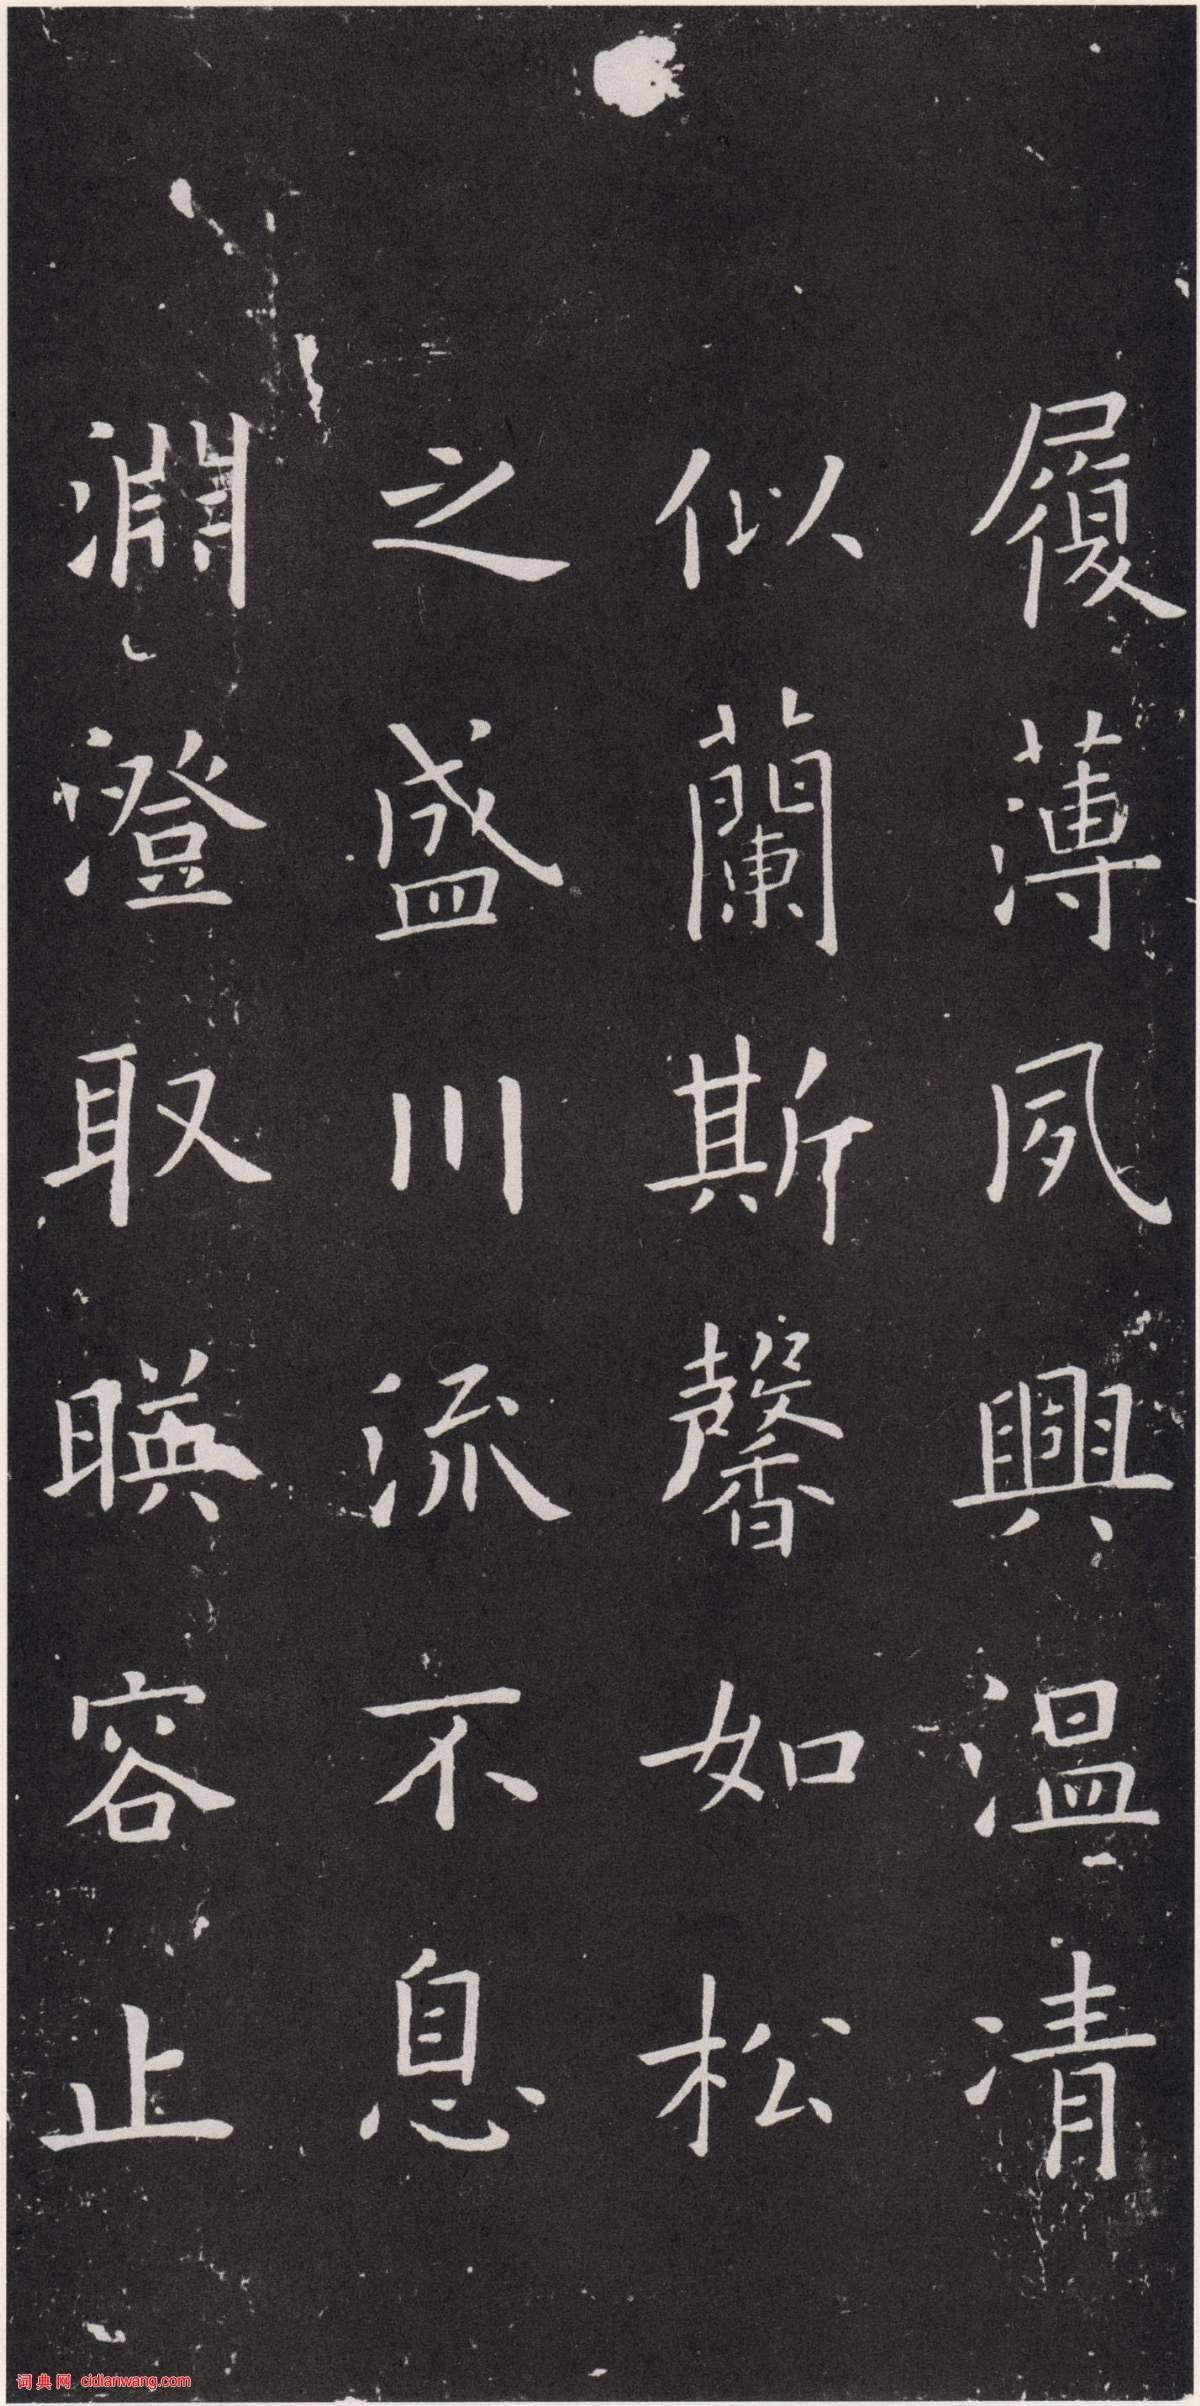 履薄夙興溫凊
似蘭斯馨如松
之盛川流不息
淵澄取暎容止
词典网 cidianwang.com